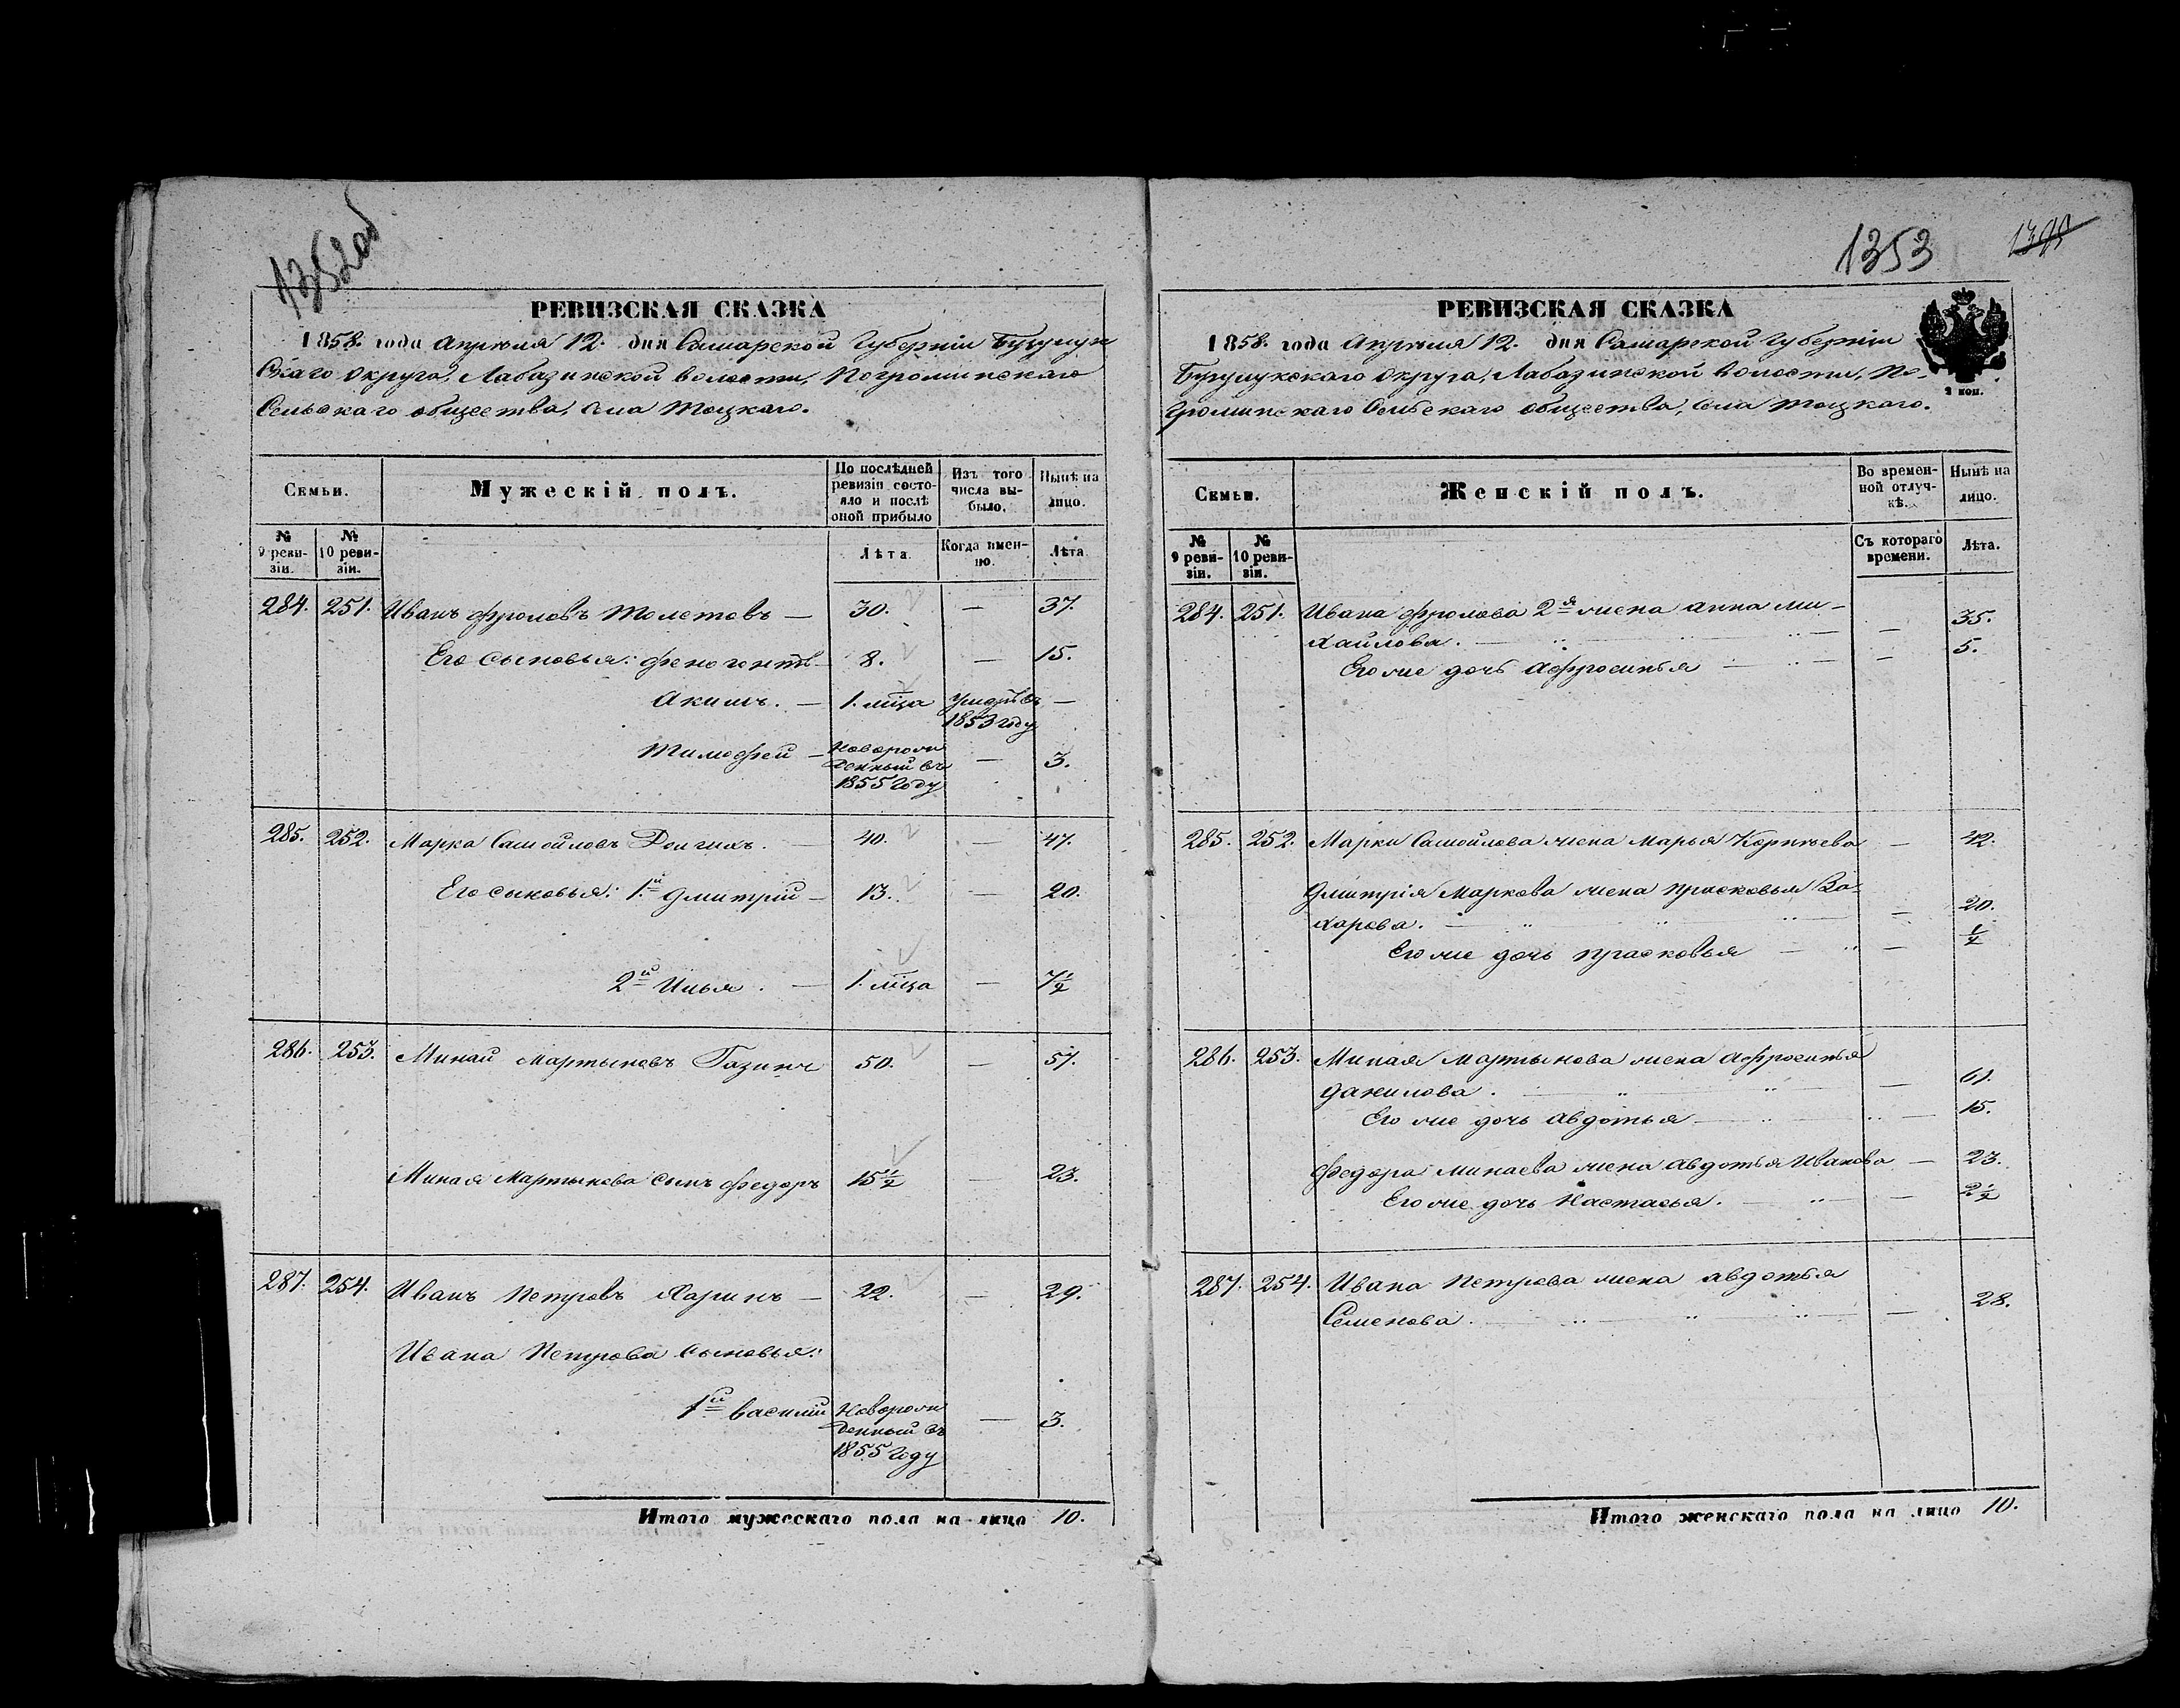 1352об
РЕВИЗСКАЯ СКАЗКА
1858. года Апреля 12. дня Самарской Губерніи Бузулук
Скаго округа, Лабазинской волости, Погроминскаго
Сельскаго общества, села Тоцкаго.
Семьи.
Мужескій полъ.
По послѣдней
ревизіи состо-
яло и послѣ
оной прибыло
Изъ того
числа вы-
было.
Нынѣ на
лицо.
№
9 реви-
зіи.
№
10 реви-
зіи.
Лѣта.
Когда имен-
но.
Лѣта.
284. 251. Иванъ Фроловъ Толстовъ — 30. — 37.
Его сыновья: Феногентъ — 8. — 15.
Акимъ. — 1. мца Умеръ въ —
1853 году
Тимофей — Наворож
денный въ — 3.
1855 году
285. 252. Марка Самойловъ Долгихъ. — 40. — 47.
Его сыновья: 1й Дмитрій — 13. — 20.
2й Илья. — 1. мца — 7½
286. 253. Минай Мартыновъ Газинъ 50. — 57.
Миная Мартынова сынъ Федоръ 15½ — 23.
287. 254. Иванъ Петровъ Харинъ — 22. — 29.
Ивана Петрова сыновья:
1й Василий Наворож
денный въ — 3.
1855 году
Итого мужескаго пола на-лицо 10.
1353
РЕВИЗСКАЯ СКАЗКА
2 коп.
1858. года Апреля 12. дня Самарской Губерніи
Бузулукскаго округа, Лабазинской волости, По-
громинскаго Сельскаго общества, села Тоцкаго.
Семьи.
Женскій полъ.
Во времен-
ной отлуч-
кѣ.
Нынѣ на
лицо.
№
9 реви-
зіи.
№
10 реви-
зіи.
Съ котораго
времени.
Лѣта.
284. 251. Ивана Фролова 2я жена Анна Ми-
хайлова. — — 35.
Его же дочь Афросинья — — 5.
285. 252. Марки Самойлова жена Марья Корнѣева — 42.
Дмитрія Маркова жена Прасковья За-
харова. — — 20.
Его же дочь Прасковья — — ½
286. 253. Миная Мартынова жена Афросинья
Данилова. — — 61.
Его же дочь Авдотья — — 15.
Федора Минаева жена Авдотья Иванова — 23.
Его же дочь Настасья. — — 2½
287. 254. Ивана Петрова жена Авдотья
Семенова. — — 28.
Итого женскаго пола на лицо 10.